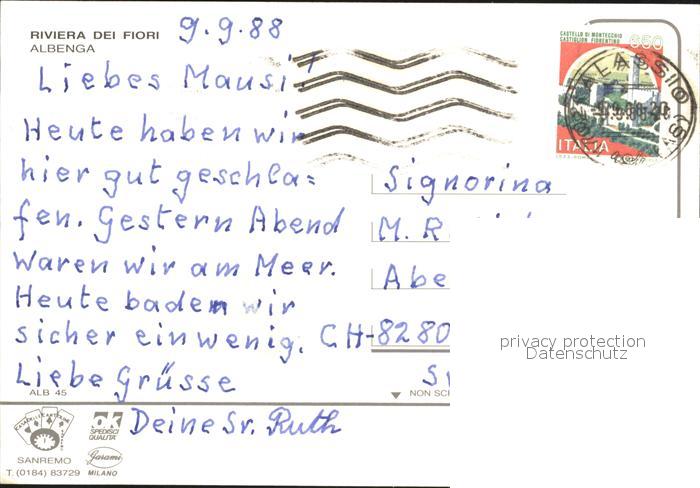 RIVIERA DEI FIORI
ALBENGA
9.9.88
Liebes Mausi!
Heute haben wir
hier gut geschla=
fen. Gestern Abend
waren wir am Meer.
Heute baden wir
sicher einwenig.
Liebe Grüsse
Deine Sr. Ruth
ALB 45
SANREMO
T. (0184) 83729
ok
SPEDISCI
QUALITA'
Garami
MILANO
CASTELLO DI MONTECCHIO
CASTIGLION FIORENTINO
650
ITALIA
ALASSIO
Signorina
M. R
Abe
CH-8280
NON SC
privacy protection
Datenschutz